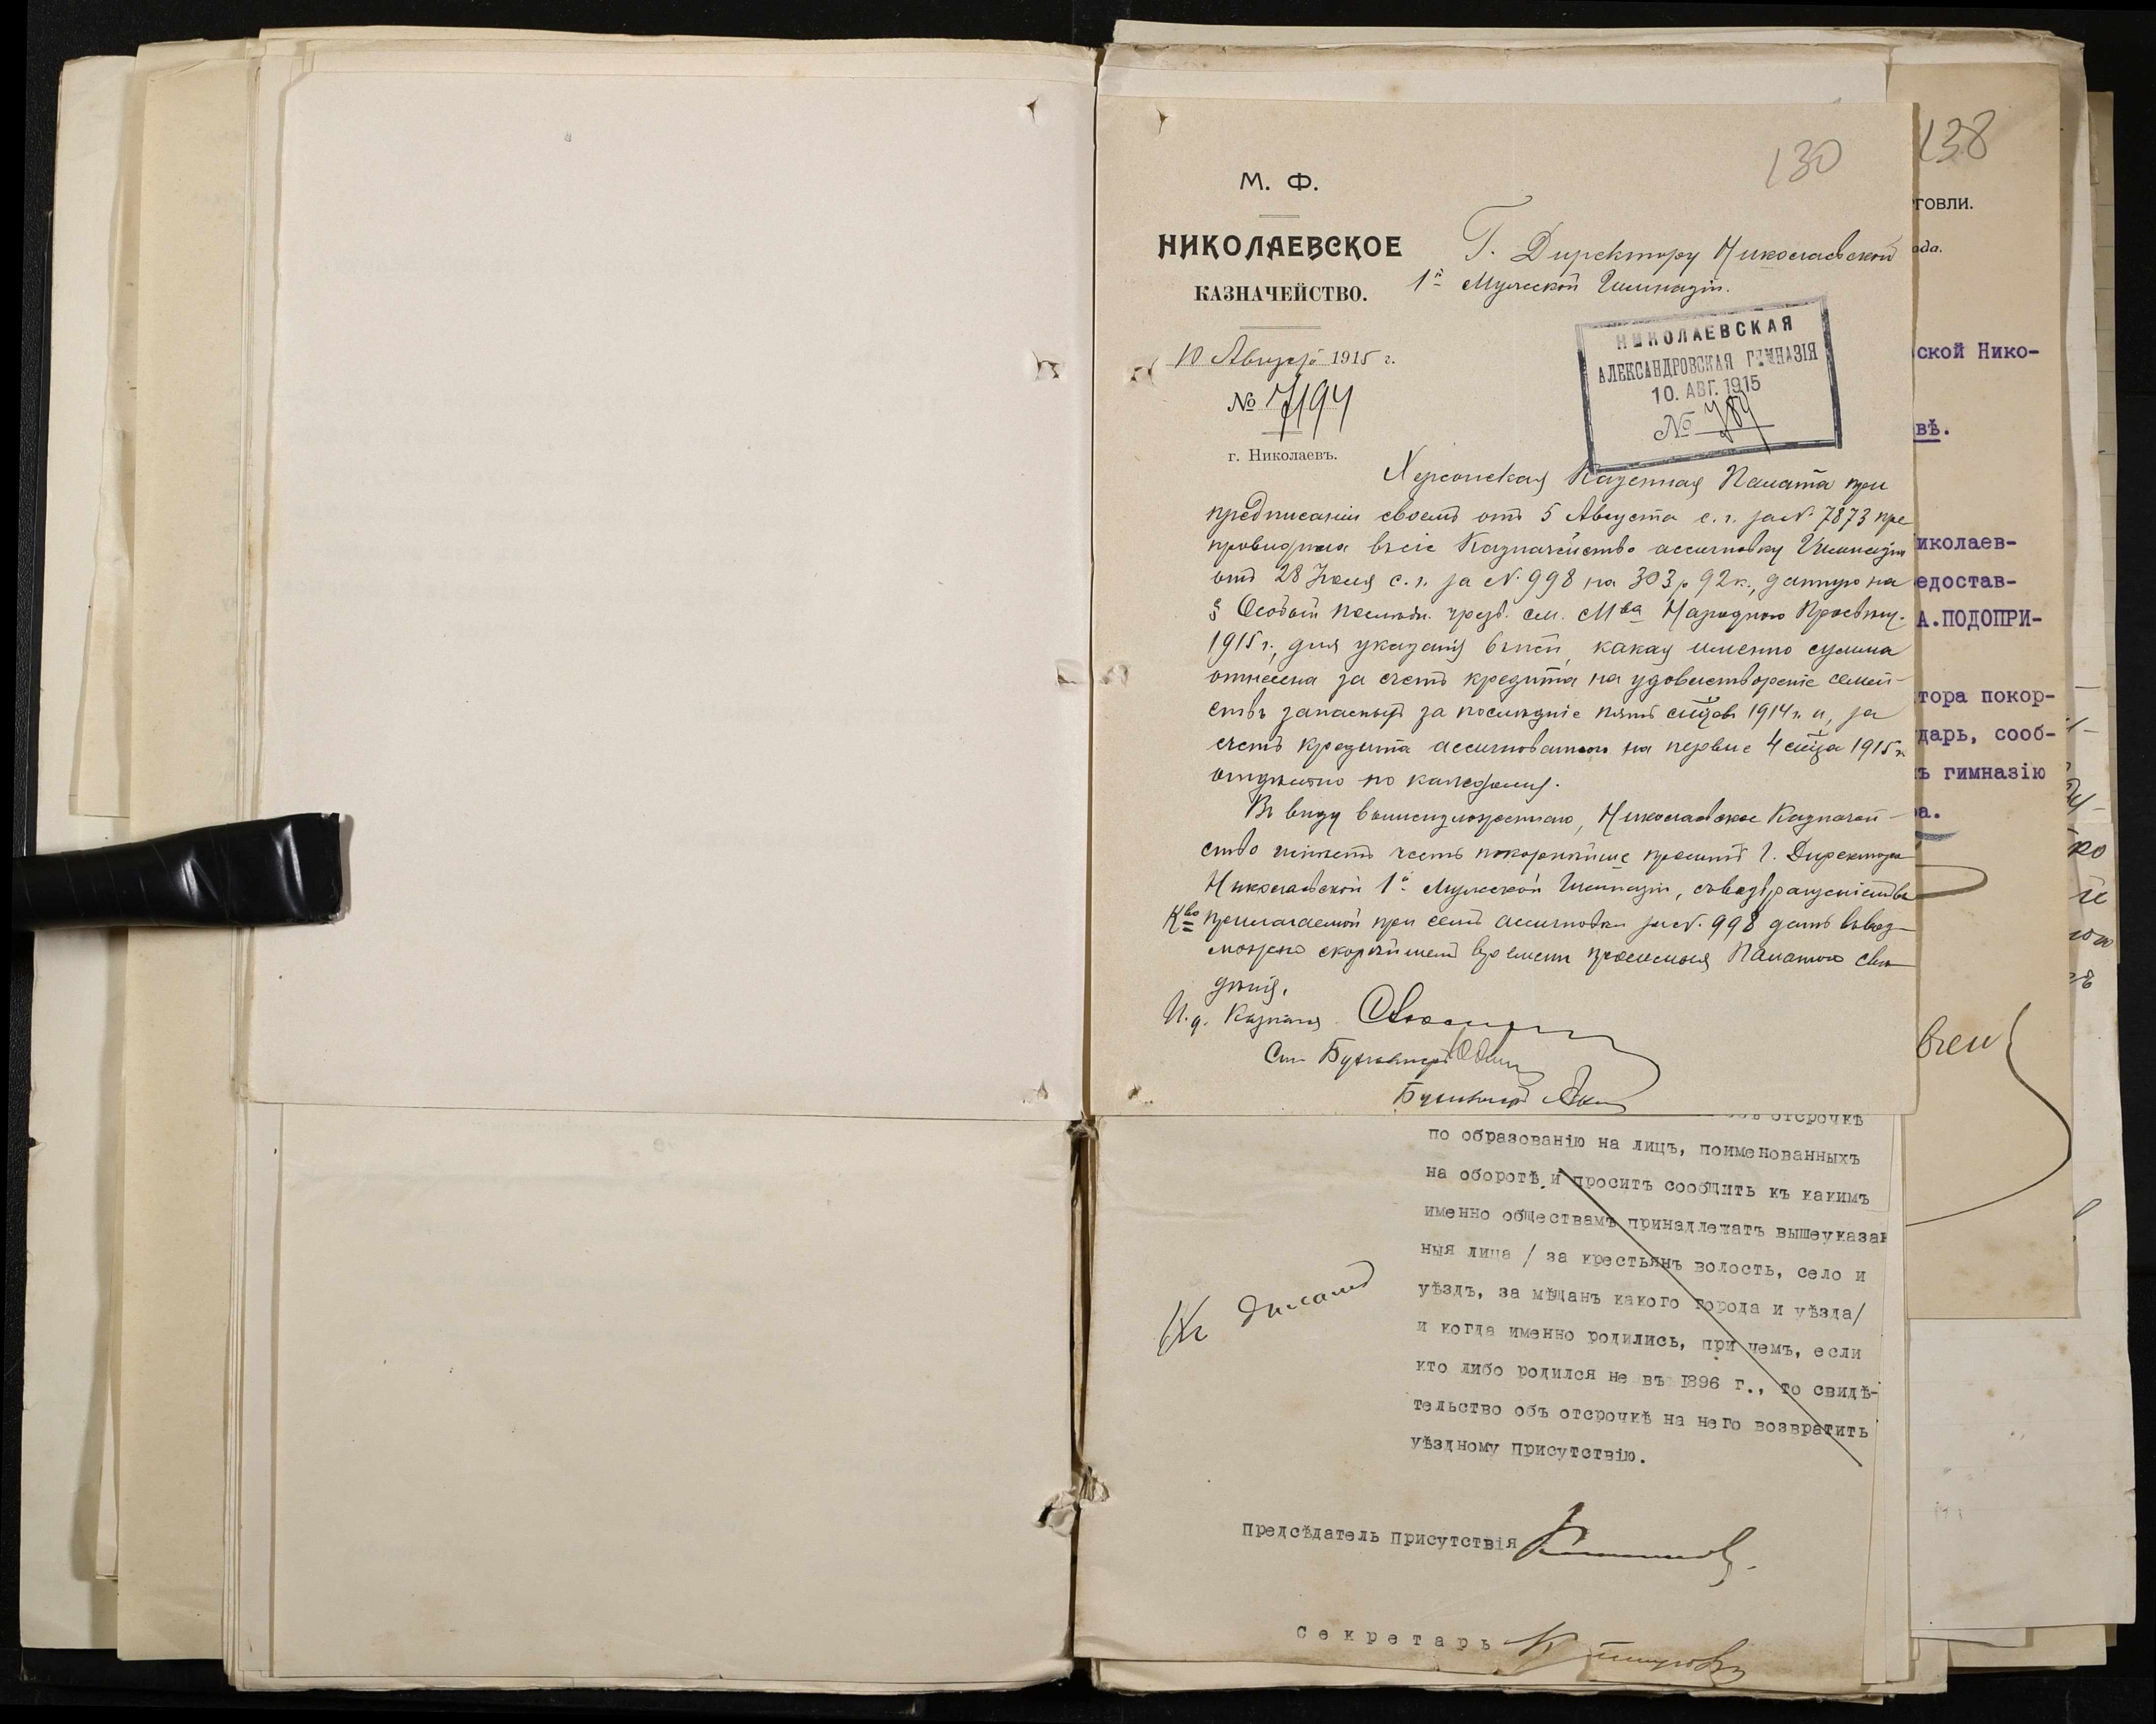 130
М. Ф.
НИКОЛАЕВСКОЕ
КАЗНАЧЕЙСТВО.
10 Августа 1915 г.
№ 7194
г. Николаевъ.
Г. Директору Николаевской
1й Мужской Гимназіи.
НИКОЛАЕВСКАЯ
АЛЕКСАНДРОВСКАЯ ГИМНАЗІЯ
10. АВГ. 1915
№ 789
Херсонская Казенная Палата при
предписаніи своемъ отъ 5 Августа с. г. за № 7873 пре
проводила въ сіе Казначейство ассигновку Гимназіи
отъ 28 Іюля с. г. за № 998 на 303 р 92 к., данную на
§ Особый послѣдн. чрезв. см. Мва Народнаго Просвѣщ.
1915 г., для указанія въ ней, какая именно сумма
отнесена за счетъ кредита на удовлетвореніе семей-
ствъ запасныхъ за послѣдніе пять мѣсяцевъ 1914 г. и, за
счетъ кредита ассигнованнаго на первые 4 мѣсяца 1915 г.
отдѣльно по каждому.
Въ виду вышеизложеннаго, Николаевское Казначей-
ство имѣетъ честь покорнѣйше просить Г. Директора
Николаевской 1й Мужской Гимназіи, съ возвращеніемъ въ
Кво прилагаемой при семъ ассигновки за № 998 дать въ воз-
можно скорѣйшемъ времени просимыя Палатою свѣ-
дѣнія.
И. д. Казначея
Ст. Бухгалтеръ
Бухгалтеръ
объ отсрочкѣ
по образованію на лицъ, поименованныхъ
на оборотѣ и проситъ сообщить къ какимъ
именно обществамъ принадлежатъ вышеуказан
ныя лица / за крестьянъ волость, село и
уѣздъ, за мѣщанъ какого города и уѣзда/
и когда именно родились, при чемъ, если
кто либо родился не въ 1896 г., то свидѣ-
тельство объ отсрочкѣ на него возвратить
уѣздному Присутствію.
Предсѣдатель Присутствія
секретарь
138
говли.
ода.
ской Нико-
вѣ.
иколаев-
едостав-
А.ПОДОПРИ-
тора покор-
дарь, сооб-
ъ гимназію
ра.